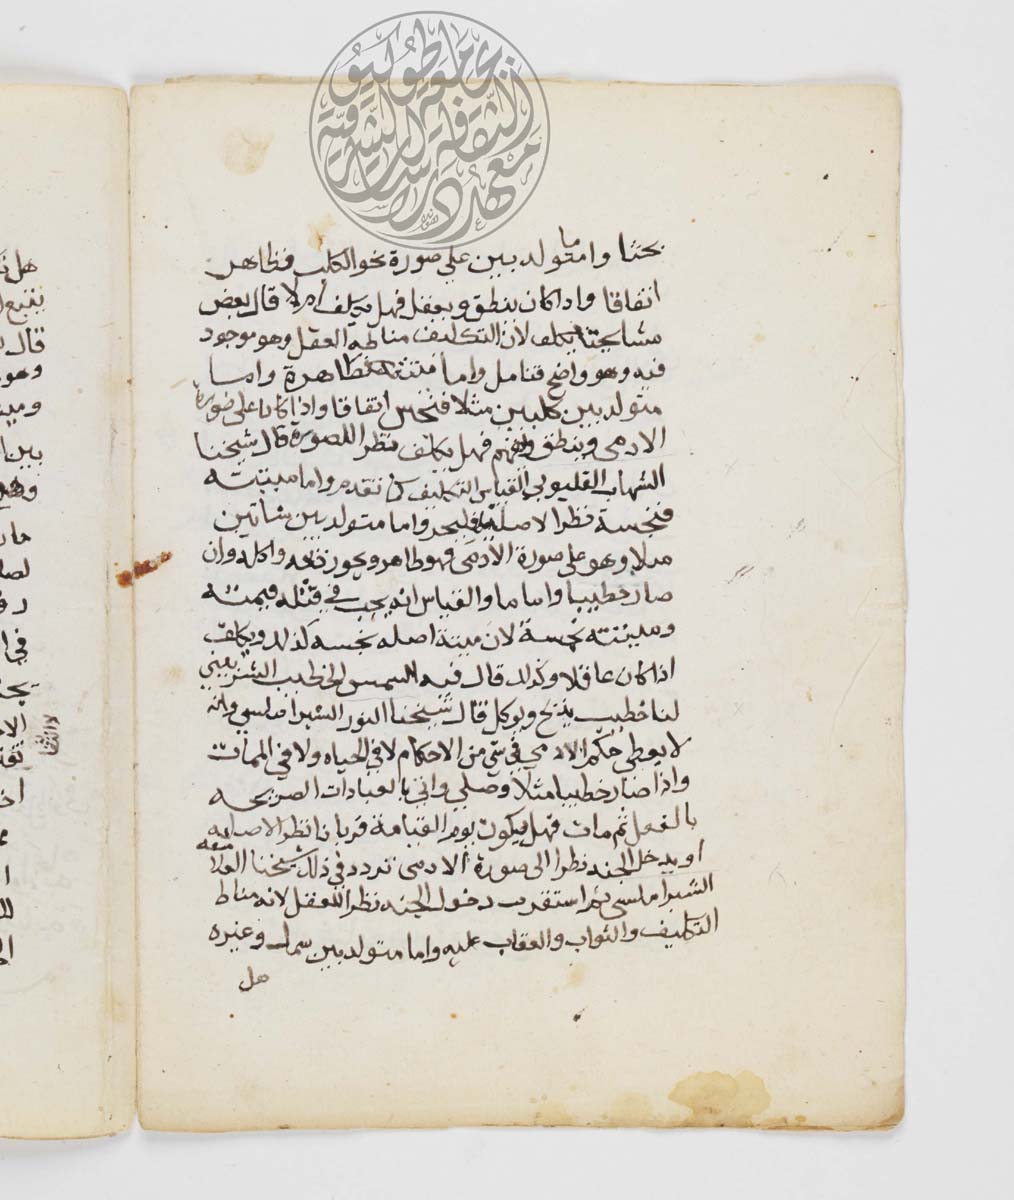 بحثا واما متولد بين على صورة نحو الكلب فظاهر
اتفاقا واذا كان ينطق ويعقل فهل يكلف ام لا قال بعض
مشايخنا يكلف لان التكليف مناطه العقل وهو موجود
فيه وهو واضح فتامل واما ميتته فطاهرة واما
متولد بين كلبين مثلا فنجس اتفاقا واذا كانا على صورة
الادمى وينطق ويفهم فهل يكلف نظرا للصورة قال شيخنا
الشهاب القليوبي القياس التكليف كما تقدم واما ميتته
فنجسة نظرا لاصله فليحرر واما متولد بين شاتين
مثلا وهو على صورة الآدمى فهو طاهر ويجوز ذبحه واكله وان
صار خطيبا واماما والقياس انه يجب في قتله قيمته
وميتته نجسة لان ميتة اصله نجسة كذلك ويكلف
اذا كان عاقلا وكذلك قال فيه الشمس الخطيب الشربيني
لنا خطيب يذبح ويوكل قال شيخنا النور الشبراملسي وانه
لا يعطى حكم الادمي في شي من الاحكام لا في الحياه ولا في الممات
واذا صار خطيبا مثلا وصلى واتى بالعبادات الصريحه
بالفعل ثم مات فهل يكون يوم القيامة قربانا نظرا لاصليه
او يدخل الجنه نظرا الى صورة الادمى تردد في ذلك شيخنا العلامة
الشبراملسي ثم استقرب دخول الجنه نظرا للعقل لانه مناط
التكليف والثواب والعقاب عليه واما متولد بين سمك وغيره
هل
معهد الثقافة والدراسات الشرقية
جامعة طوكيو